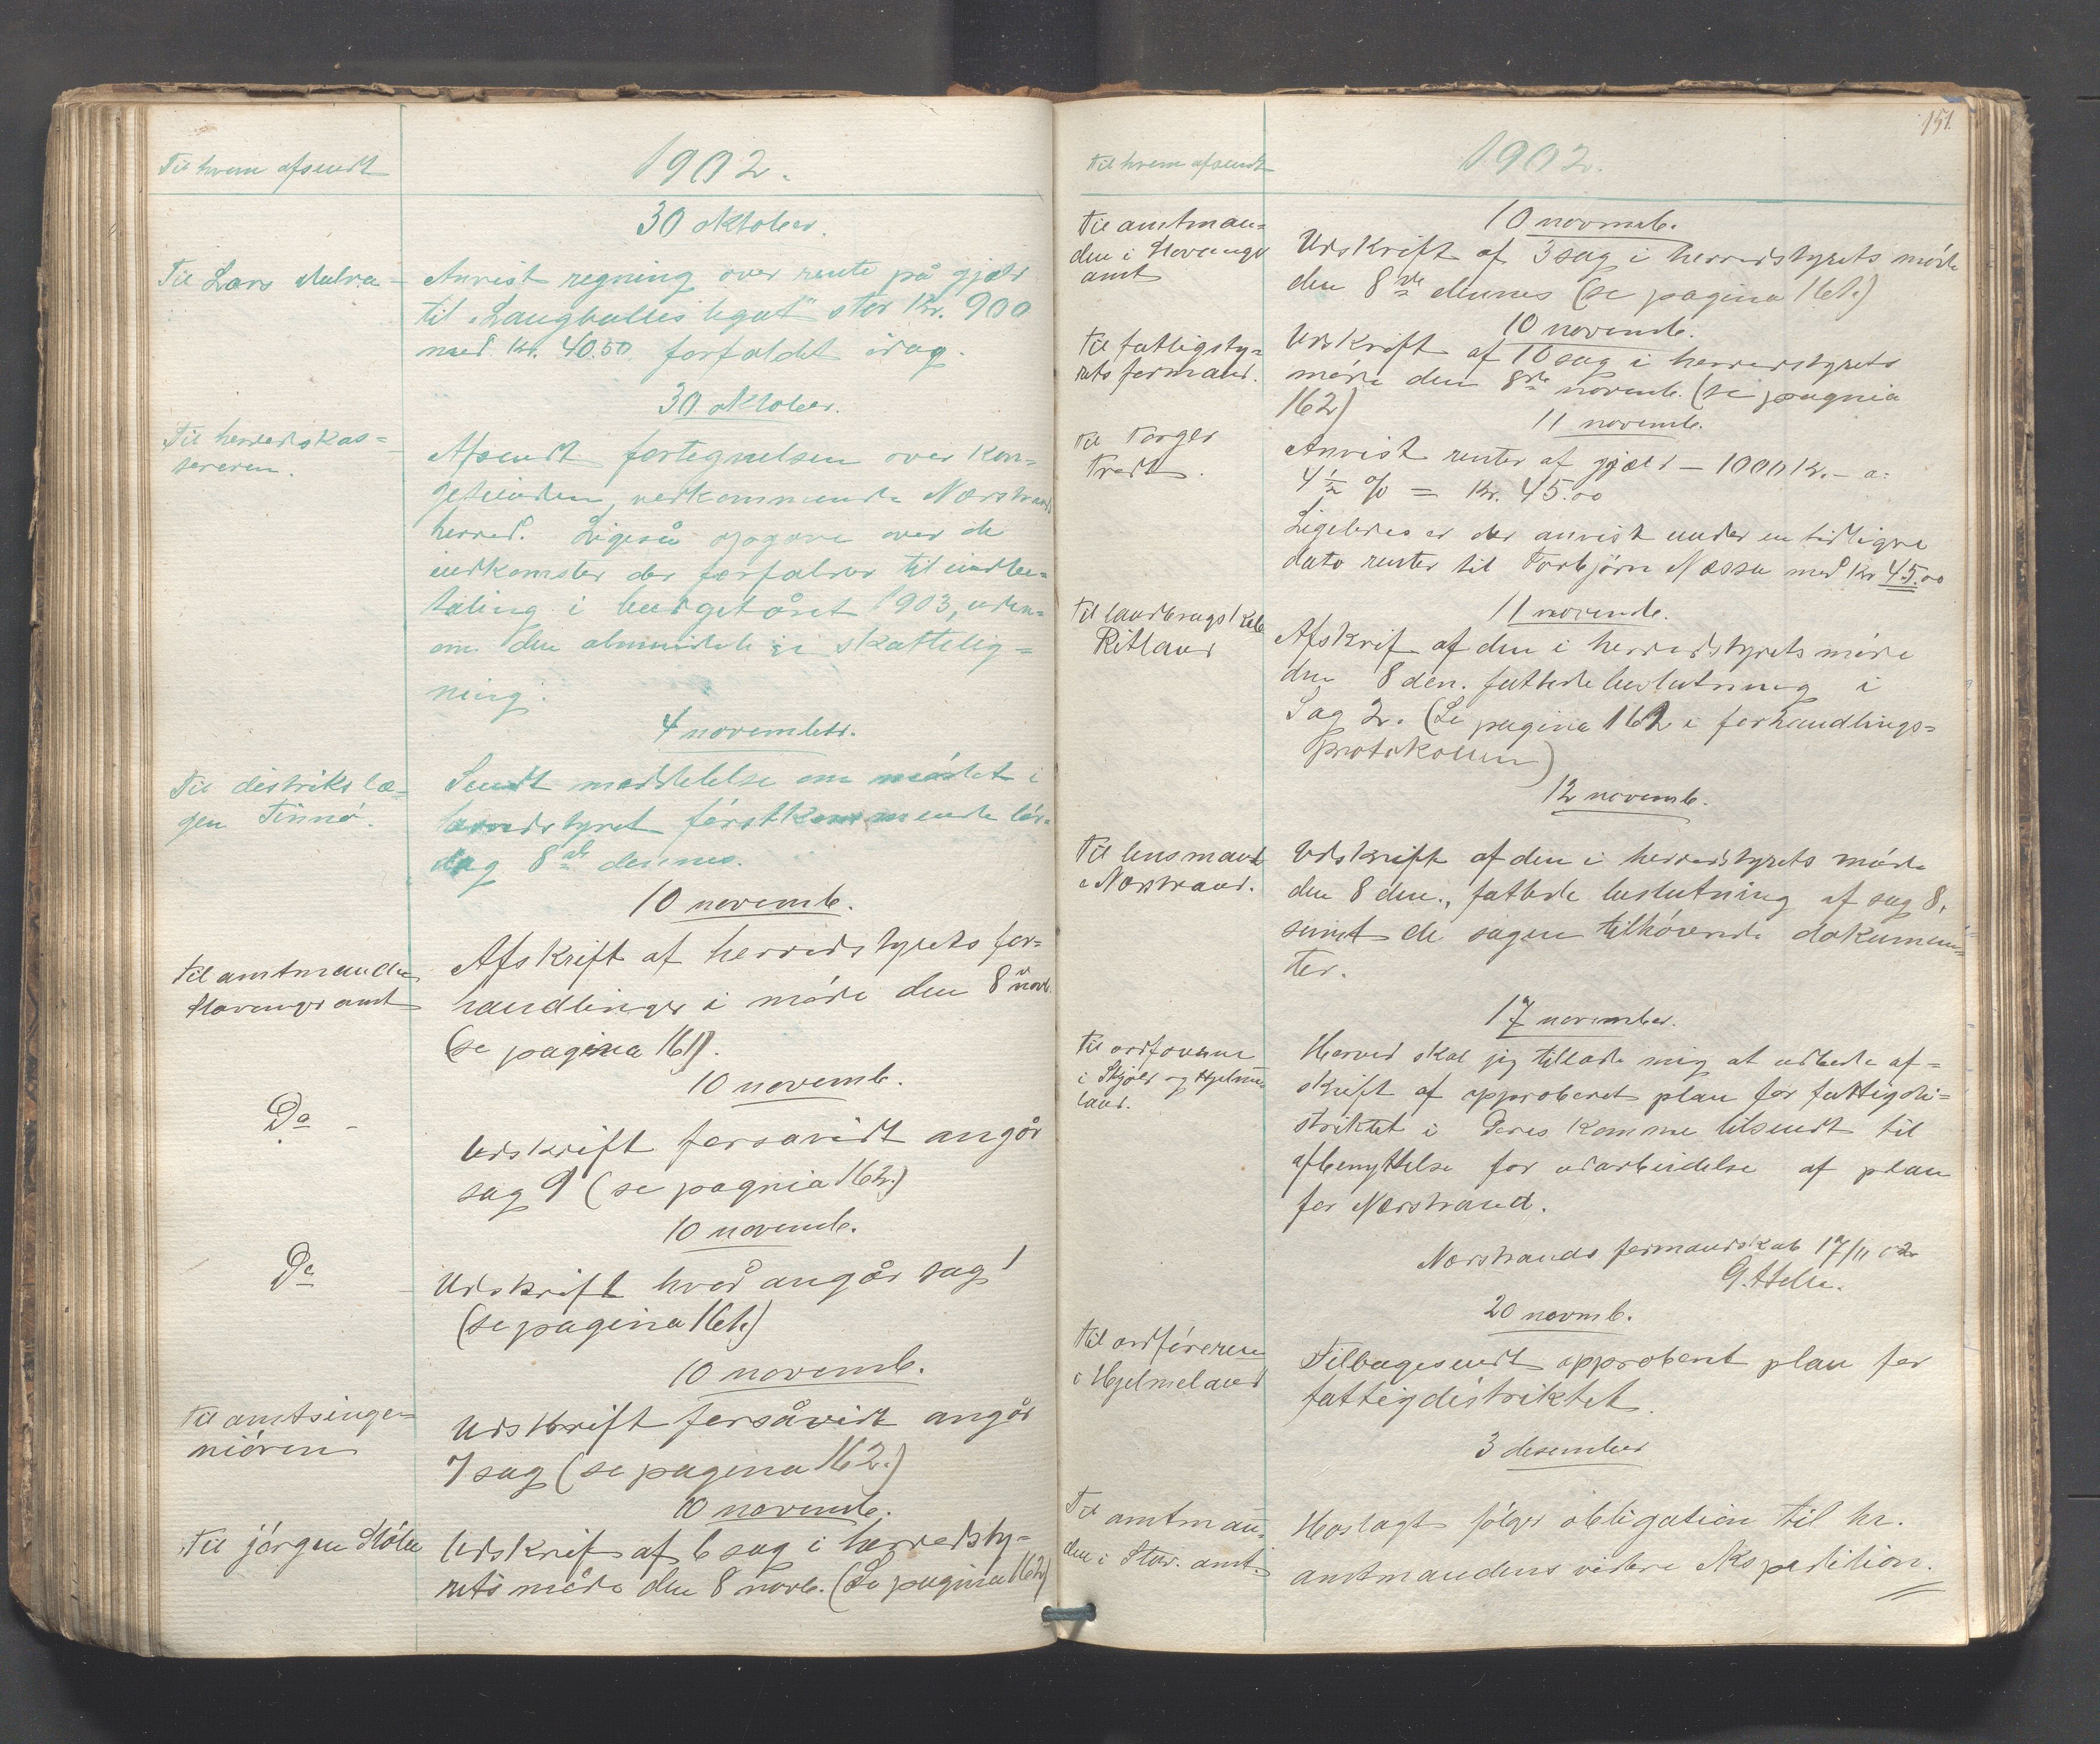 Til hvem afsendt
1902.
30 oktober.
Til Lars
Anvist regning over rente på gjæld
til "Laugballes legat" stor Kr. 900
med Kr. 40.50 forfaldet idag.
30 oktober.
Til herredskas=
sereren.
Afsendt fortegnelsen over kon=
getienden, vedkommende Nærstrand
herred. Ligeså opgave over de
indkomster der forfalder til indbe=
taling i budgetåret 1903, uden=
om den almindelige skattelig=
ning.
4 novembr.
Til distriktslæ=
gen Finnö.
Sendt meddelelse om mödet i
herredstyret förstkommende lör=
dag 8de dennes.
10 novemb.
Til amtmanden
Stavanger amt
Afskrift af herredstyrets for=
handlinger i möde den 8 novb.
(se pagina 161).
10 novemb.
Do -
Udskrift forsavidt angår
sag 9 (se pagnia 162.)
10 novemb.
Do
Udskrift hvad angår sag 1
(se pagina 161.)
10 novemb.
Til amtsinge=
niören
Udskrift forsåvidt angår
7 sag (se pagina 162.)
10 novemb.
Til jörgen Stölen
Udskrift af 6 sag i herredsty=
rets möde den 8 novb. (Se pagina 162)
151.
Til hvem afsendt
1902.
10 novmb.
Til amtman=
den i Stavanger
amt
Udskrift af 3 sag i herredstyrets möde
den 8de dennes (se pagina 161.)
10 novemb.
Til fattigsty=
rets formand.
Udskrift af 10 sag i herredstyrets
möde den 8de novemb. (se pagnia
162)
11 novemb.
Til Torger
Tredt.
Anvist renter af gjæld – 1000 Kr. – a:
4 1/2 % = Kr. 45.00
Ligeledes er der anvist under en tidligere
dato renter til Torbjörn Næssa med Kr 45.00
11 novemb.
Til landbrugs
Ritland
Afskrif af den i herredstyrets möde
den 8 den. fattede beslutning i
Sag 2. (Se pagina 162 i forhandlings=
protokollen)
12 novemb.
Til lensmand
i Nærstrand.
Udskrift af den i herredstyrets möde
den 8 den., fattede beslutning af sag 8,
samt de sagen tilhörende dokumen=
ter.
17 november.
Til ordförerne
i Skjold og Hjelme
land.
Herved skal jeg tillade mig at udbede af=
skrift af approberet plan for fattigdi=
striktet i Deres komme tilsendt til
afbenyttelse for udarbeidelse af plan
for Nærstrand.
Nærstrands formandskab 17/11 02
G. Helle.
20 novmb.
Til ordföreren
i Hjelmeland
Tilbagesendt approbert plan for
fattigdistriktet.
3 desember
Til
amtman=
den i Stav. amt.
Hoslagt fölger obligation til hr.
amtmandens videre ekspedition.